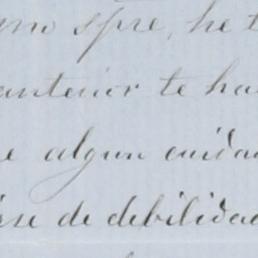 mo spre, he t
anterior te ha
e algun cuida
rse de debilidad